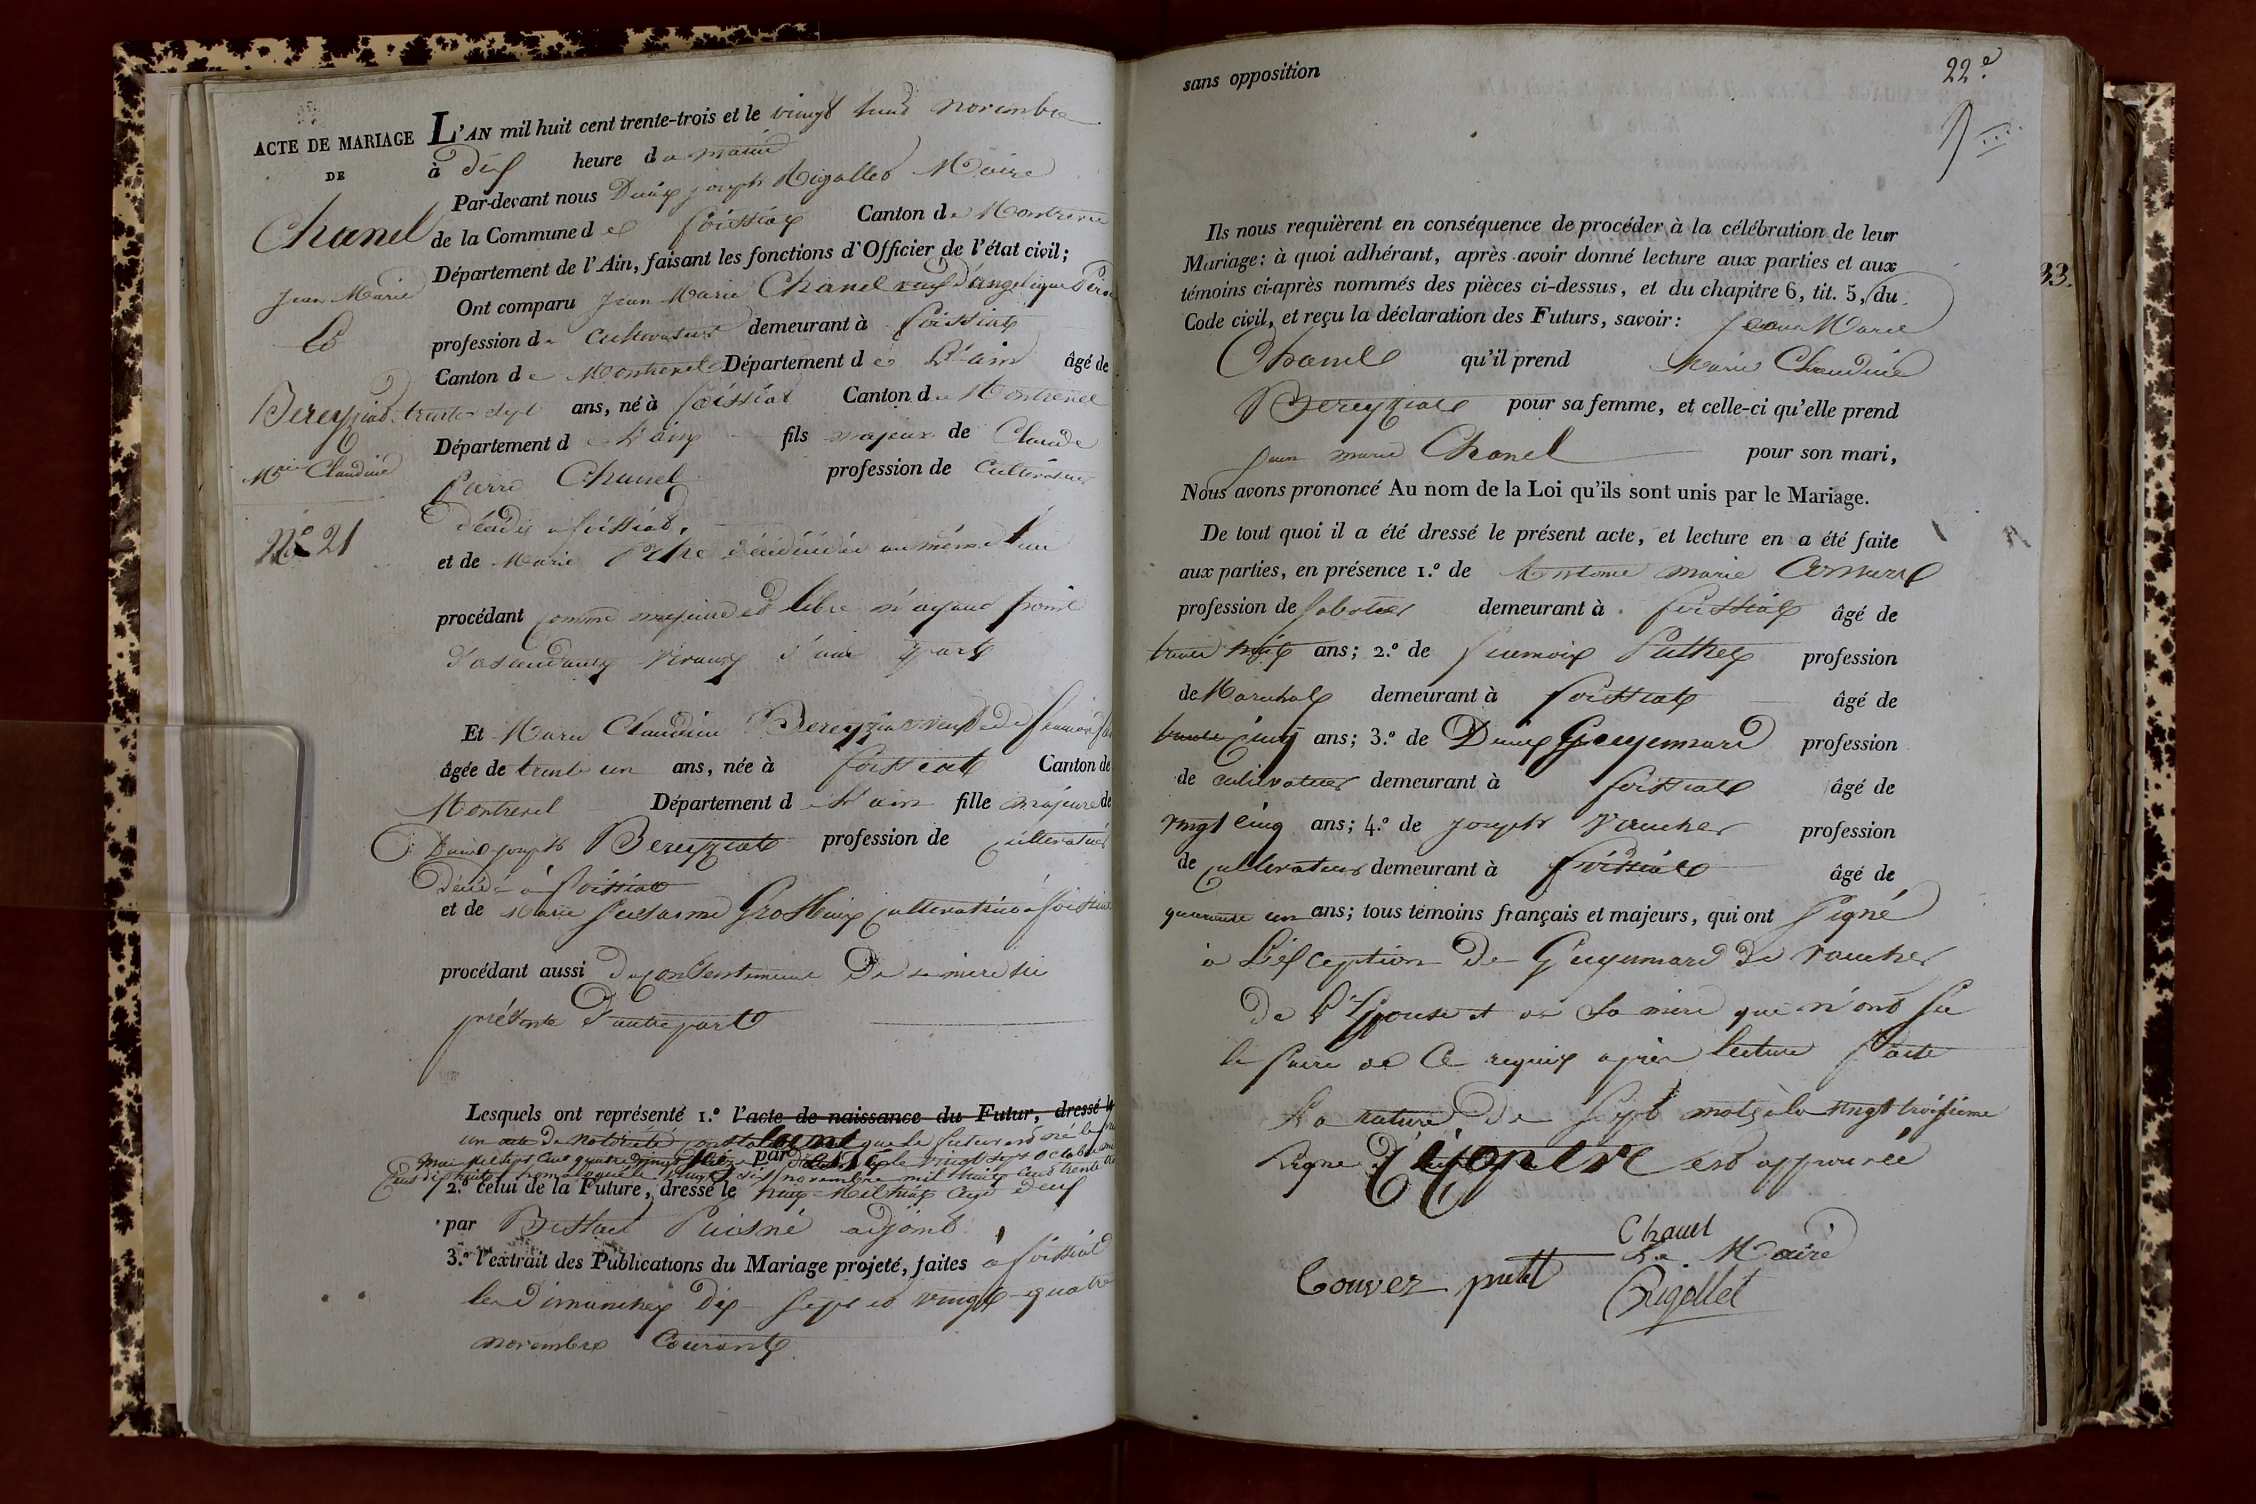 ACTE DE MARIAGE
DE
Chanel
Jean Marie
Et
Bereyziat
Mie Claudine
No 21
L'AN mil huit cent trente-trois et le vingt huit novembre
à dix heure du matin
Par-devant nous Denis joseph Rigollet Maire
de la Commune de foissiat Canton de Montrevel
Département de l'Ain, faisant les fonctions d'Officier de l'état civil;
Ont comparu Jean Marie Chanel veuf d'angelique
profession de cultivateur demeurant à foissiat
Canton de Montrevel Département de L'ain âgé de
trente sept ans, né à foissiat Canton de Montrevel
Département de L'ain fils majeur de Claude
pierre Chanel profession de cultivateur
décédé a foissiat,
et de Marie décédée au même lieu
procédant comme majeur et libre n'ayant point
d'ascendants vivants d'une part
Et Marie Claudine Bereyziat veuve de
âgée de trente un ans, née à foissiat Canton de
Montrevel Département de L'ain fille majeure de
Denis joseph Bereyziat profession de cultivateur
décédé à foissiat
et de Marie cultivatrice a foissiat
procédant aussi du consentement de sa mère ici
présente d'autre part
Lesquels ont représenté 1.º l'acte de naissance du Futur, dressé le
un acte de notoriété constatant que le futur est né le
mai mil sept cent quatre vingt seize par le vingt sept octobre
novembre mil huit cent trente
2.º celui de la Future, dressé le huit cent deux
par Puisné adjoint
3.º l'extrait des Publications du Mariage projeté, faites à foissiat
les dimanches dix sept et vingt-quatre
novembre Courant
sans opposition
22e
33.
Ils nous requièrent en conséquence de procéder à la célébration de leur
Mariage: à quoi adhérant, après avoir donné lecture aux parties et aux
témoins ci-après nommés des pièces ci-dessus, et du chapitre 6, tit. 5, du
Code civil, et reçu la déclaration des Futurs, savoir: Jean Marie
Chanel qu'il prend Marie Claudine
Bereyziat pour sa femme, et celle-ci qu'elle prend
jean marie Chanel pour son mari,
Nous avons prononcé Au nom de la Loi qu'ils sont unis par le Mariage.
De tout quoi il a été dressé le présent acte, et lecture en a été faite
aux parties, en présence 1.º de Antoine marie
profession de sabotier demeurant à foissiat âgé de
trente ans; 2.º de profession
de Marechal demeurant à foissiat âgé de
trente cinq ans; 3.º de Denis Guyennard profession
de cultivateur demeurant à foissiat âgé de
vingt cinq ans; 4.º de joseph vaucher profession
de cultivateur demeurant à foissiat âgé de
quarante un ans; tous témoins français et majeurs, qui ont signé
à L'exception de Guyennard de vaucher
de L'Epouse et de sa mère qui n'ont su
le faire de ce requis après lecture faite
La rature de sept mots à la vingt troisième
ligne est approuvée
Chanel
Le Maire
Convez putet
Rigollet